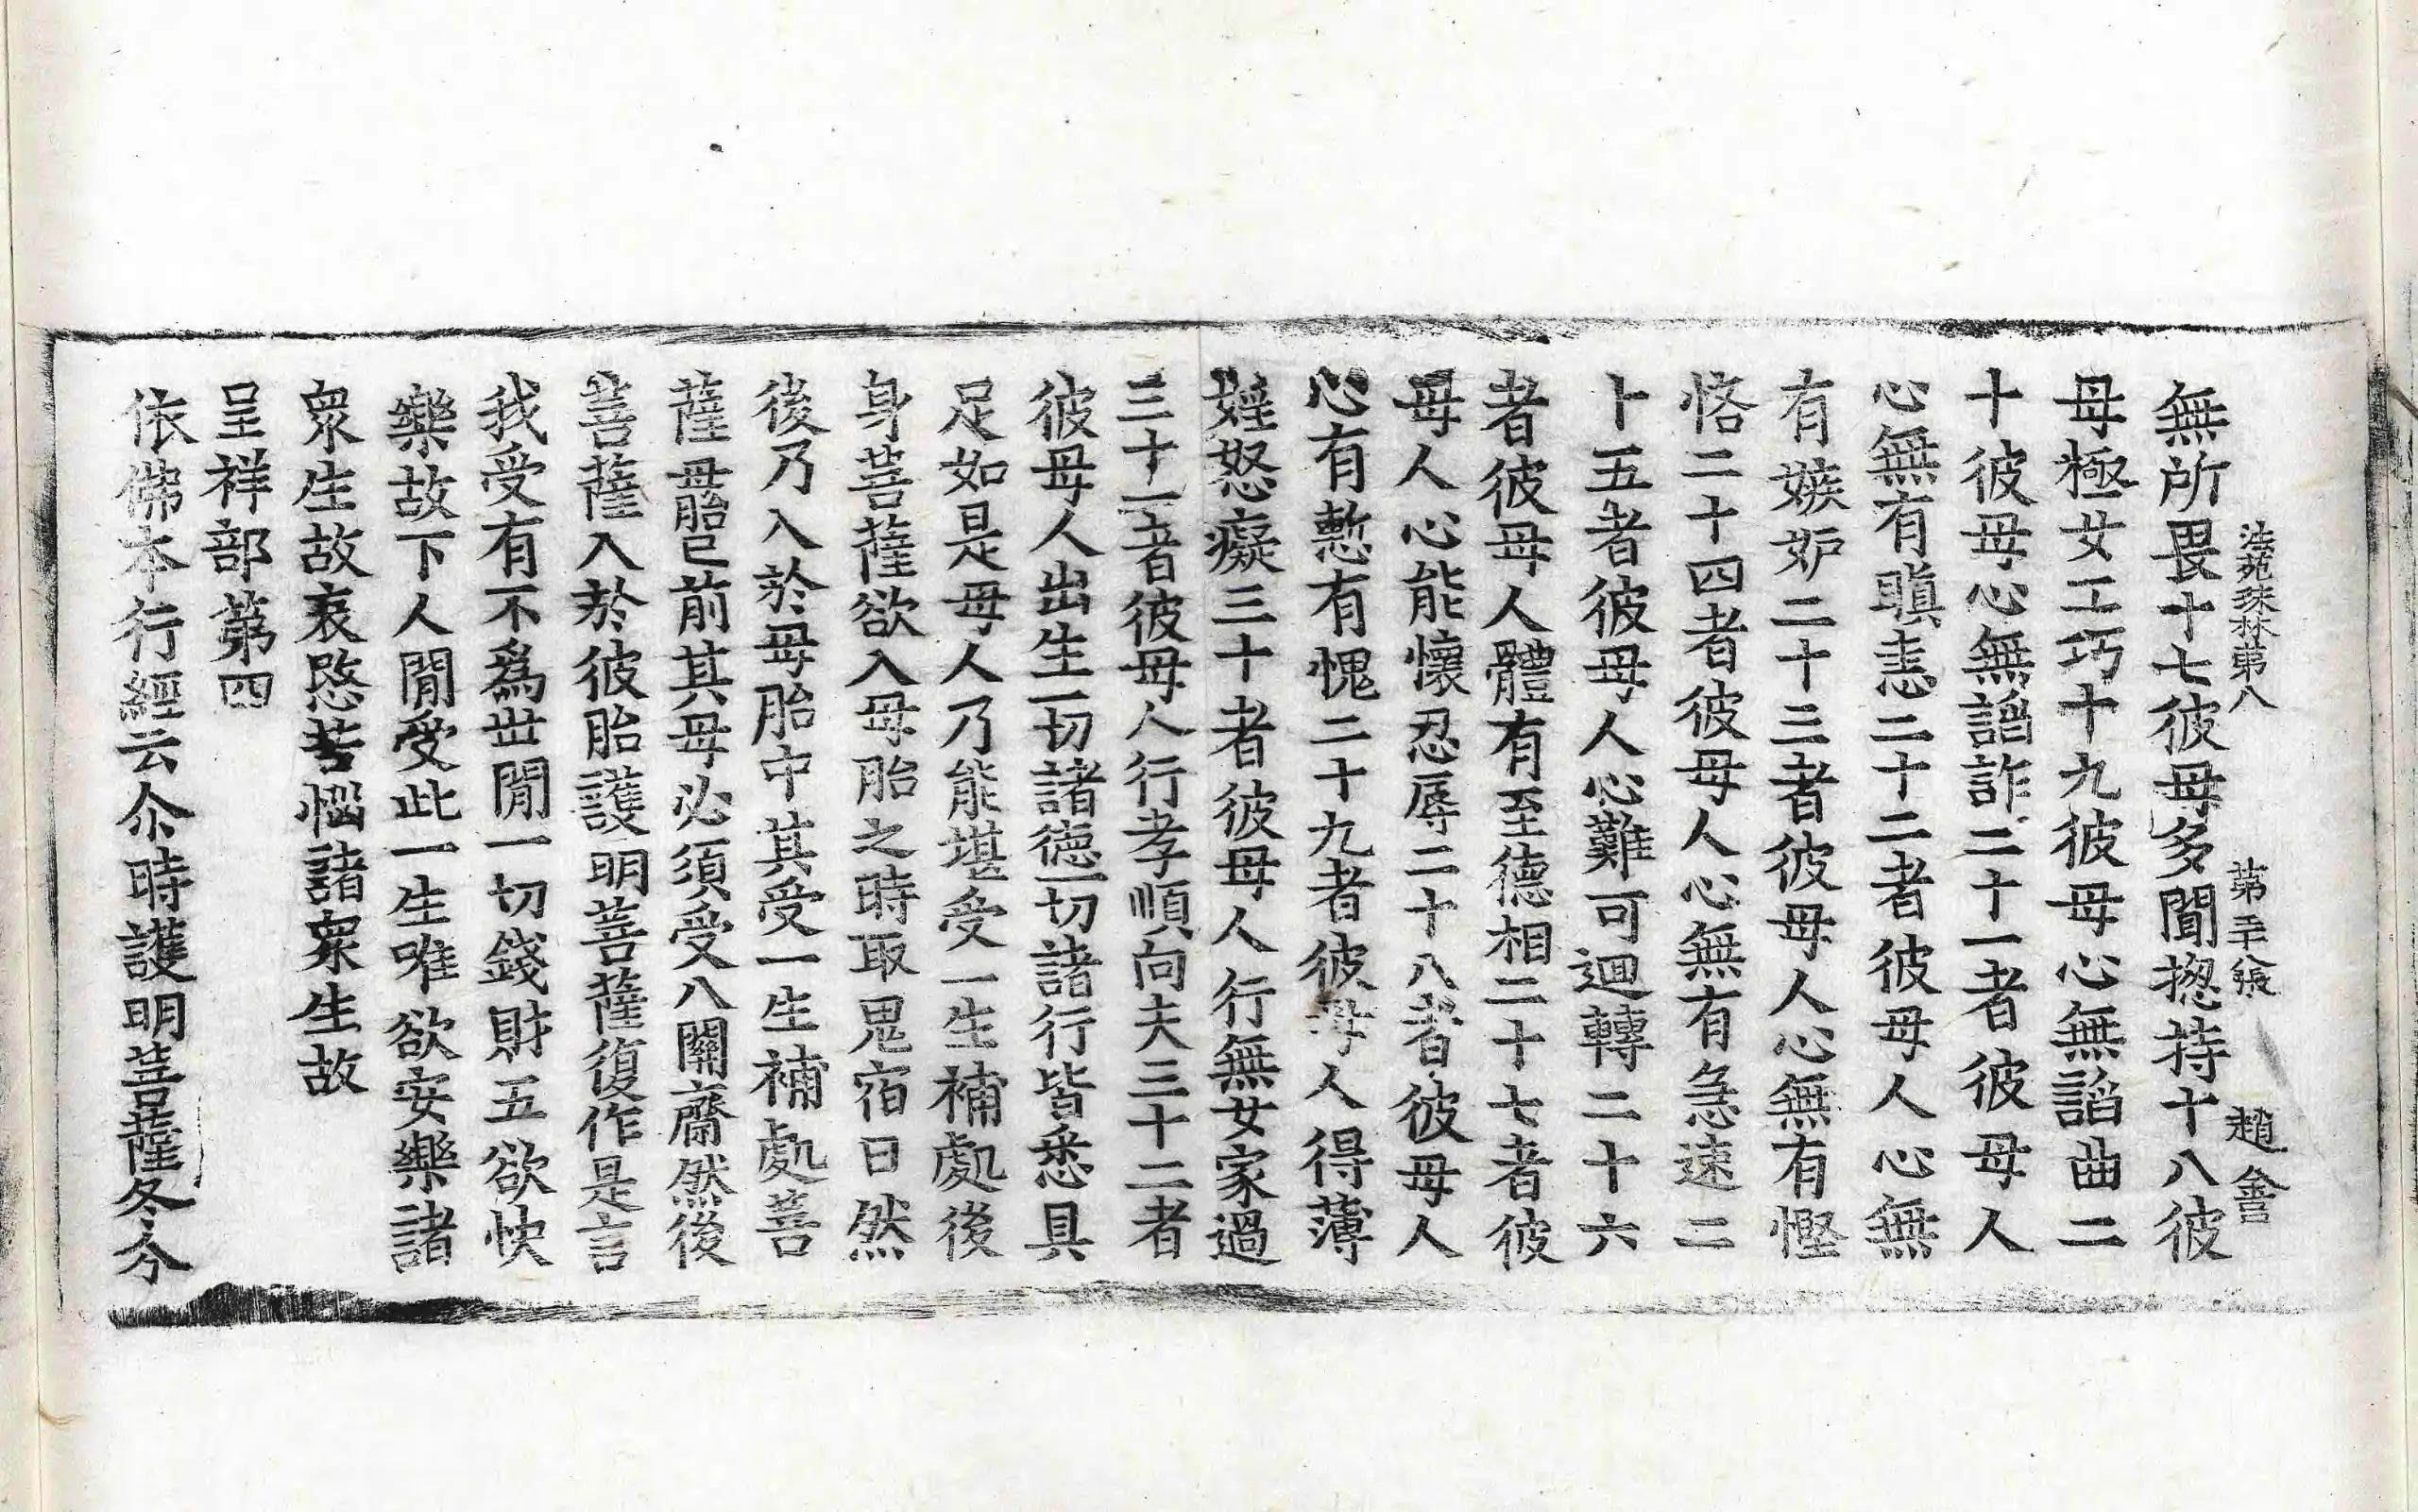 法苑珠林第八 第二十八張 趙 
無所畏十七彼母多聞揔持十八彼
母極女工巧十九彼母心無諂曲二
十彼母心無謟詐二十一者彼母人
心無有瞋恚二十二者彼母人心無
有嫉妒二十三者彼母人心無有慳
悋二十四者彼母人心無有急速二
十五者彼母人心難可迴轉二十六
者彼母人體有至德相二十七者彼
母人心能懷忍辱二十八者彼母人
心有慙有愧二十九者彼母人得薄
婬怒癡三十者彼母人行無女家過
三十一者彼母人行孝順向夫三十二者
彼母人出生一切諸德一切諸行皆悉具
足如是母人乃能堪受一生補處後
身菩薩欲入母胎之時取鬼宿日然
後乃入於母胎中其受一生補處菩
薩母胎已前其母必須受八關齋然後
菩薩入於彼胎護明菩薩復作是言
我受有不爲世間一切錢財五欲快
樂故下人間受此一生唯欲安樂諸
衆生故哀愍苦惱諸衆生故
呈祥部第四
依佛本行經云尒時護明菩薩冬分